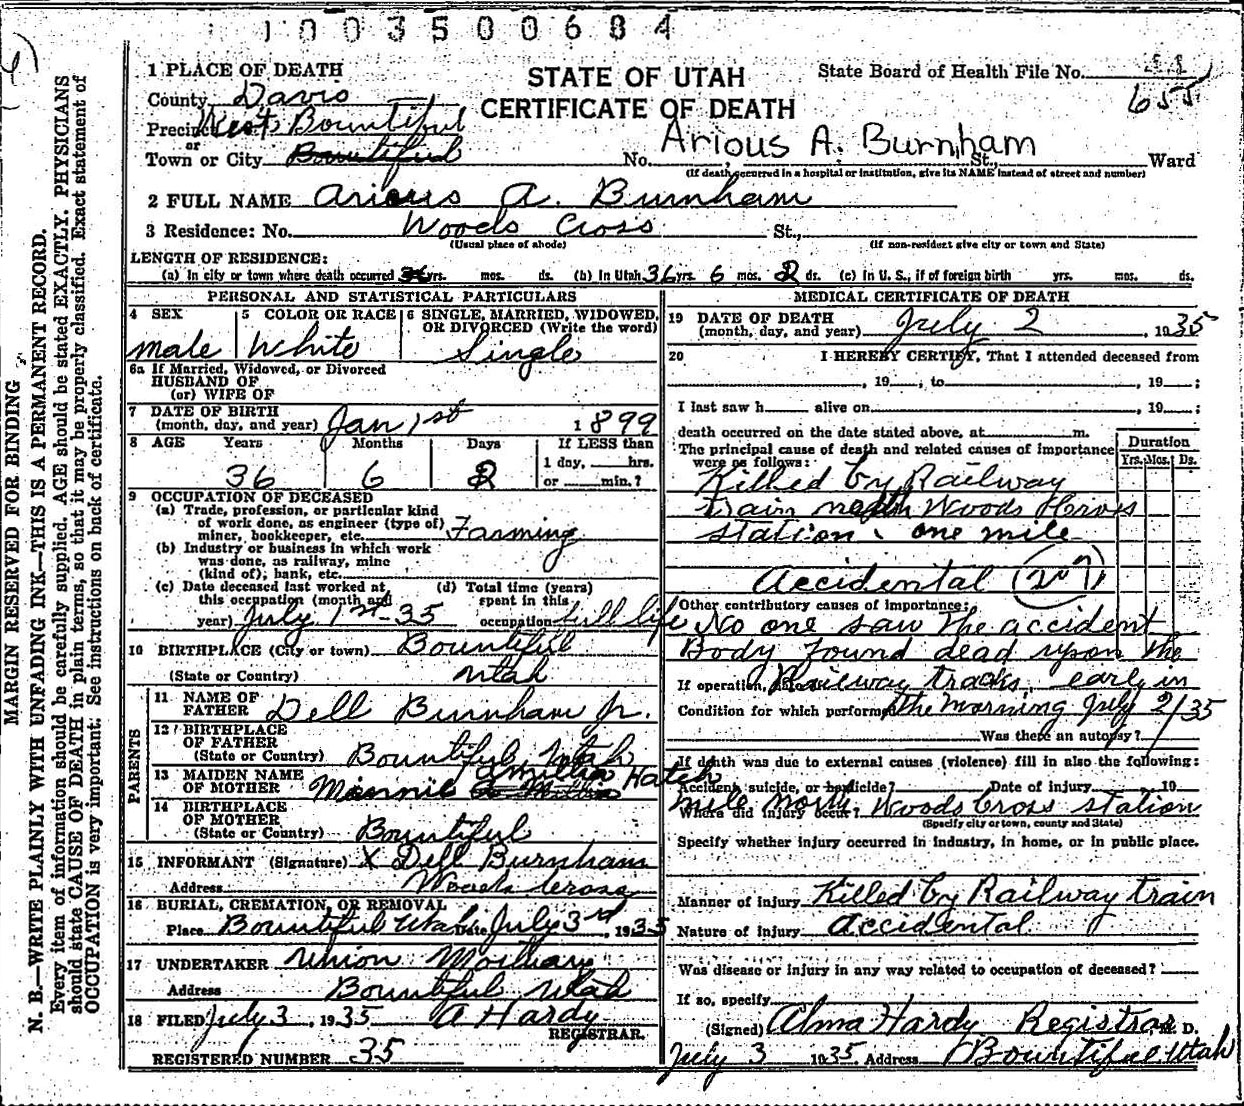 1003500684
1 PLACE OF DEATH
STATE OF UTAH
CERTIFICATE OF DEATH
State Board of Health File No. 44
655
County Davis
Precinct West Bountiful
or
Town or City Bountiful No. Arious A. Burnham St., Ward
(If death occurred in a hospital or institution, give its NAME instead of street and number)
2 FULL NAME Arious A. Burnham
3 Residence: No. Woods Cross St.,
(Usual place of abode) (If non-resident give city or town and State)
LENGTH OF RESIDENCE:
(a) In city or town where death occurred 36 yrs. mos. ds. (b) In Utah 36 yrs. 6 mos. 2 ds. (c) In U. S., if of foreign birth yrs. mos. ds.
MARGIN RESERVED FOR BINDING
N. B.—WRITE PLAINLY WITH UNFADING INK—THIS IS A PERMANENT RECORD.
Every item of information should be carefully supplied. AGE should be stated EXACTLY. PHYSICIANS
should state CAUSE OF DEATH in plain terms, so that it may be properly classified. Exact statement of
OCCUPATION is very important. See instructions on back of certificate.
PERSONAL AND STATISTICAL PARTICULARS
4 SEX 5 COLOR OR RACE 6 SINGLE, MARRIED, WIDOWED,
OR DIVORCED (Write the word)
male White Single
6a If Married, Widowed, or Divorced
HUSBAND OF
(or) WIFE OF
7 DATE OF BIRTH
(month, day, and year) Jan 1st 1899
8 AGE Years Months Days If LESS than
36 6 2 1 day, hrs.
or min.?
9 OCCUPATION OF DECEASED
(a) Trade, profession, or particular kind
of work done, as engineer (type of)
miner, bookkeeper, etc. Farming
(b) Industry or business in which work
was done, as railway, mine
(kind of); bank, etc.
(c) Date deceased last worked at (d) Total time (years)
this occupation (month and spent in this
year) July 1st-35 occupation full life
10 BIRTHPLACE (City or town) Bountiful
(State or Country) Utah
PARENTS
11 NAME OF
FATHER Dell Burnham Jr.
12 BIRTHPLACE
OF FATHER
(State or Country) Bountiful, Utah
13 MAIDEN NAME
OF MOTHER Minnie Hatch
14 BIRTHPLACE
OF MOTHER
(State or Country) Bountiful
15 INFORMANT (Signature) X Dell Burnham
Address Woods Cross
16 BURIAL, CREMATION, OR REMOVAL
Place Bountiful Utah Date July 3rd, 1935
17 UNDERTAKER Union Mortuary
Address Bountiful Utah
18 FILED July 3, 1935 A Hardy
REGISTRAR.
REGISTERED NUMBER 35
MEDICAL CERTIFICATE OF DEATH
19 DATE OF DEATH
(month, day, and year) July 2 1935
20 I HEREBY CERTIFY, That I attended deceased from
, 19 , to , 19 ;
I last saw h alive on , 19 ;
death occurred on the date stated above, at m.
The principal cause of death and related causes of importance
were as follows:
Duration
Yrs. Mos. Ds.
Killed by Railway
train north Woods Cross
station, one mile
Accidental (207)
Other contributory causes of importance:
No one saw the accident
Body found dead upon the
If operation, Railway tracks, early in
Condition for which performed the morning July 2/35
Was there an autopsy?
If death was due to external causes (violence) fill in also the following:
Accident, suicide, or homicide? Date of injury 19
Where did injury occur? mile north Woods Cross station
(Specify city or town, county and State)
Specify whether injury occurred in industry, in home, or in public place.
Manner of injury Killed by Railway train
Nature of injury Accidental
Was disease or injury in any way related to occupation of deceased?
If so, specify
(Signed) Alma Hardy Registrar M. D.
July 3 1935 Address Bountiful Utah